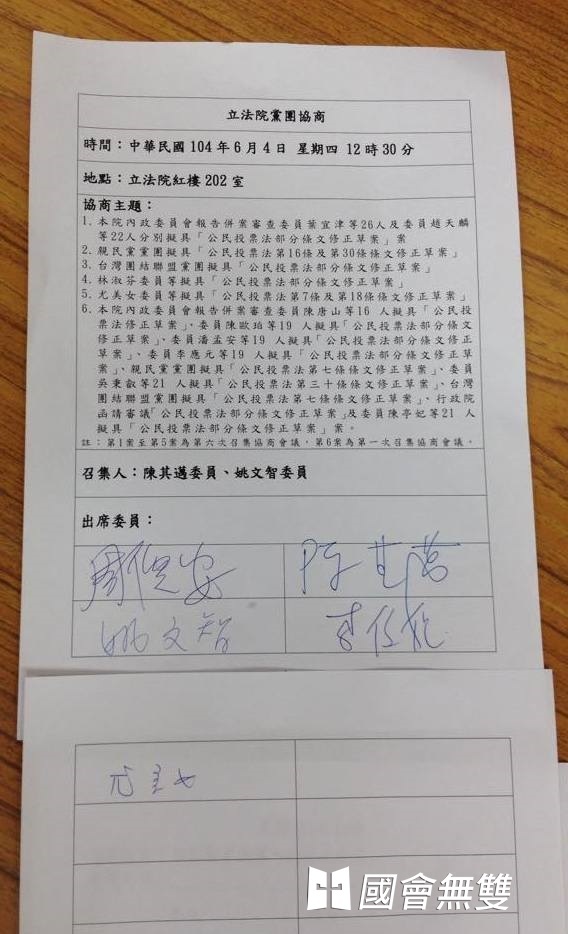 立法院黨團協商
時間：中華民國 104 年 6 月 4 日 星期四 12 時 30 分
地點：立法院紅樓 202 室
協商主題：
1. 本院內政委員會報告併案審查委員葉宜津等26人及委員趙天麟
等22人分別擬具「公民投票法部分條文修正草案」案
2. 親民黨黨團擬具「公民投票法第16條及第30條條文修正草案」
3. 台灣團結聯盟黨團擬具「公民投票法部分條文修正草案」
4. 林淑芬委員等擬具「公民投票法部分條文修正草案」
5. 尤美女委員等擬具「公民投票法第7條及第18條條文修正草案」
6. 本院內政委員會報告併案審查委員陳唐山等16 人擬具「公民投
票法修正草案」、委員陳歐珀等19 人擬具「公民投票法部分條文
修正草案」、委員潘孟安等19 人擬具「公民投票法部分條文修正
草案」、委員李應元等19 人擬具「公民投票法部分條文修正草案
」、親民黨黨團擬具「公民投票法第七條條文修正草案」、委員
吳秉叡等21 人擬具「公民投票法第三十條條文修正草案」、台灣
團結聯盟黨團擬具「公民投票法第七條條文修正草案」、行政院
函請審議「公民投票法部分條文修正草案」及委員陳亭妃等21 人
擬具「公民投票法部分條文修正草案」案。
註：第1案至第5案為第六次召集協商會議，第6案為第一次召集協商會議。
召集人：陳其邁委員、姚文智委員
出席委員：
周倪安 陳其邁
姚文智
尤美女
國會無雙